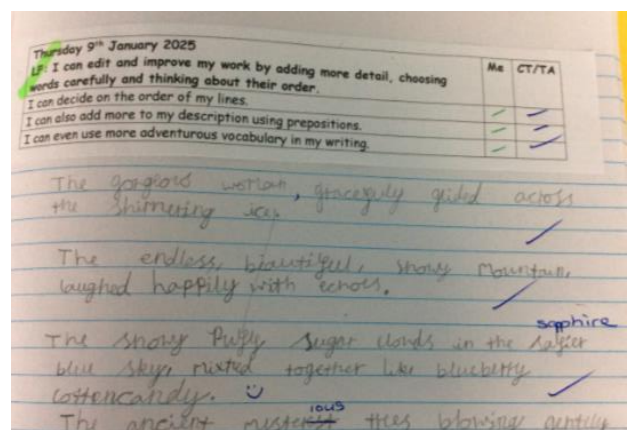 Thursday 9th January 2025
LF: I can edit and improve my work by adding more detail, choosing
words carefully and thinking about their order.
Me CT/TA
I can decide on the order of my lines.
I can also add more to my description using prepositions.
I can even use more adventurous vocabulary in my writing.
The gorgious woman, gracefuly glided across
the shimering ice.
The endless, biautiful, snowy Mountain,
laughed happily with echoes.
sapphire
The snowy Puffy sugar clouds in the
blue sky, mixted together like blueberry
cottencandy.
ious
The ancient trees blowing gently